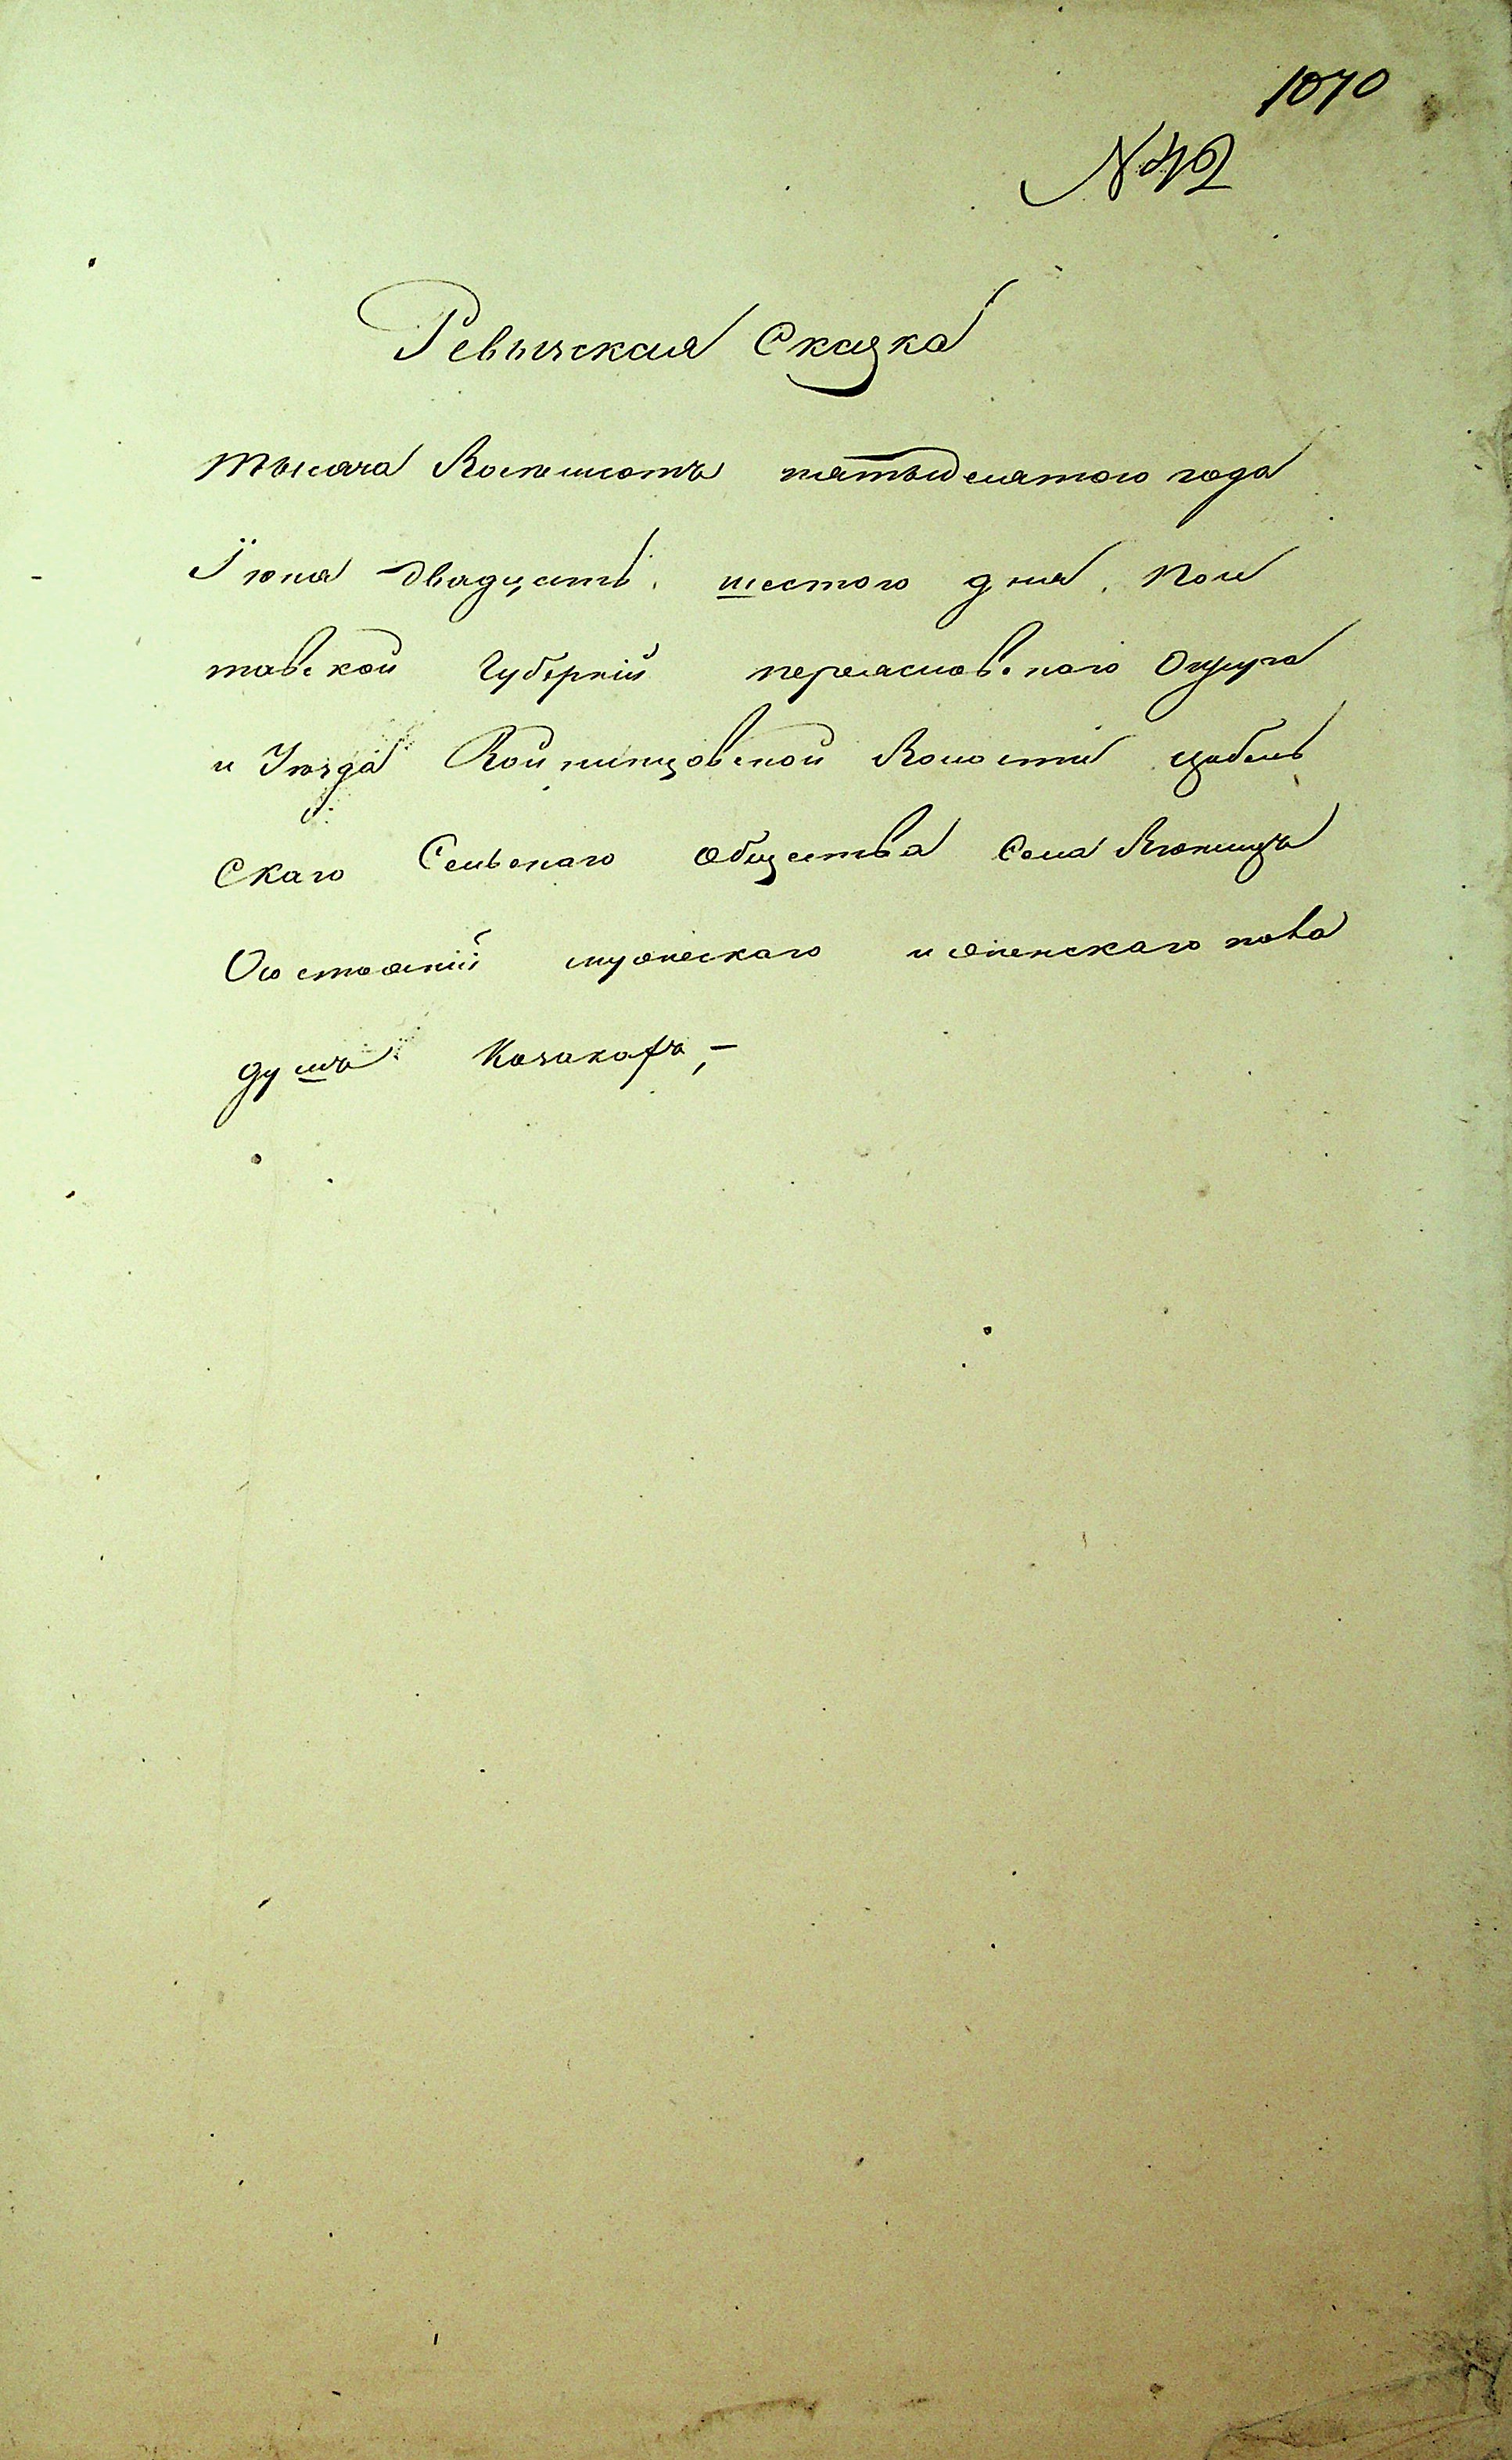 1070
№ 42
Ревизская Сказка
тысяча Восемьсотъ пятьидесятого года
Іюня двадцать шестого дня, Пол
тавской Губерніи переяславского Округа
и Уезда Войтовцовской Волости
скаго Сельскаго общества села Вюнищъ
О состояніи мужескаго и женскаго пола
душъ Казакахъ,-